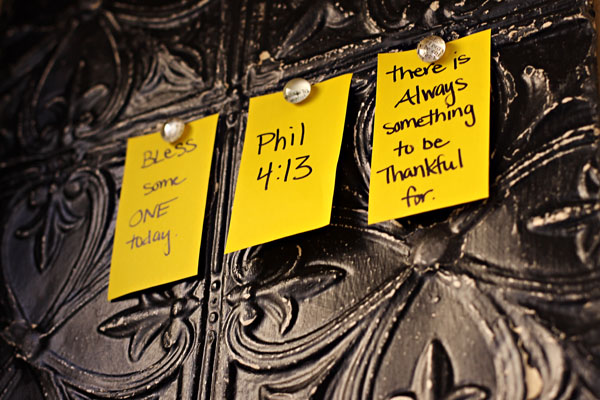 Bless
some
ONE
today.
Phil
4:13
there is
Always
something
to be
Thankful
for.